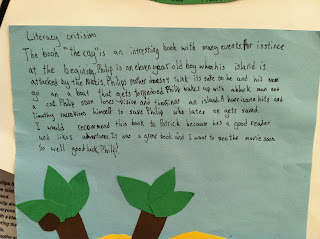 Literacy critism
The book "the cay" is an intersting book with many events. For instince
at the begining Philip is an eleven year old boy when his island is
attacked by the Natzis. Philips mother doesn't think its safe so he and his mom
go on a boat that gets torpedoed. Philip wakes up with a black man and
a cat. Philip soon loses vision and finds an island. A hurricane hits and
timothy sacrifices himself to save Philip who later on gets saved.
I would recommend this book to Patrick because hes a good reader
and likes adventures. It was a great book and I want to see the movie soon.
So well good luck, Philip!